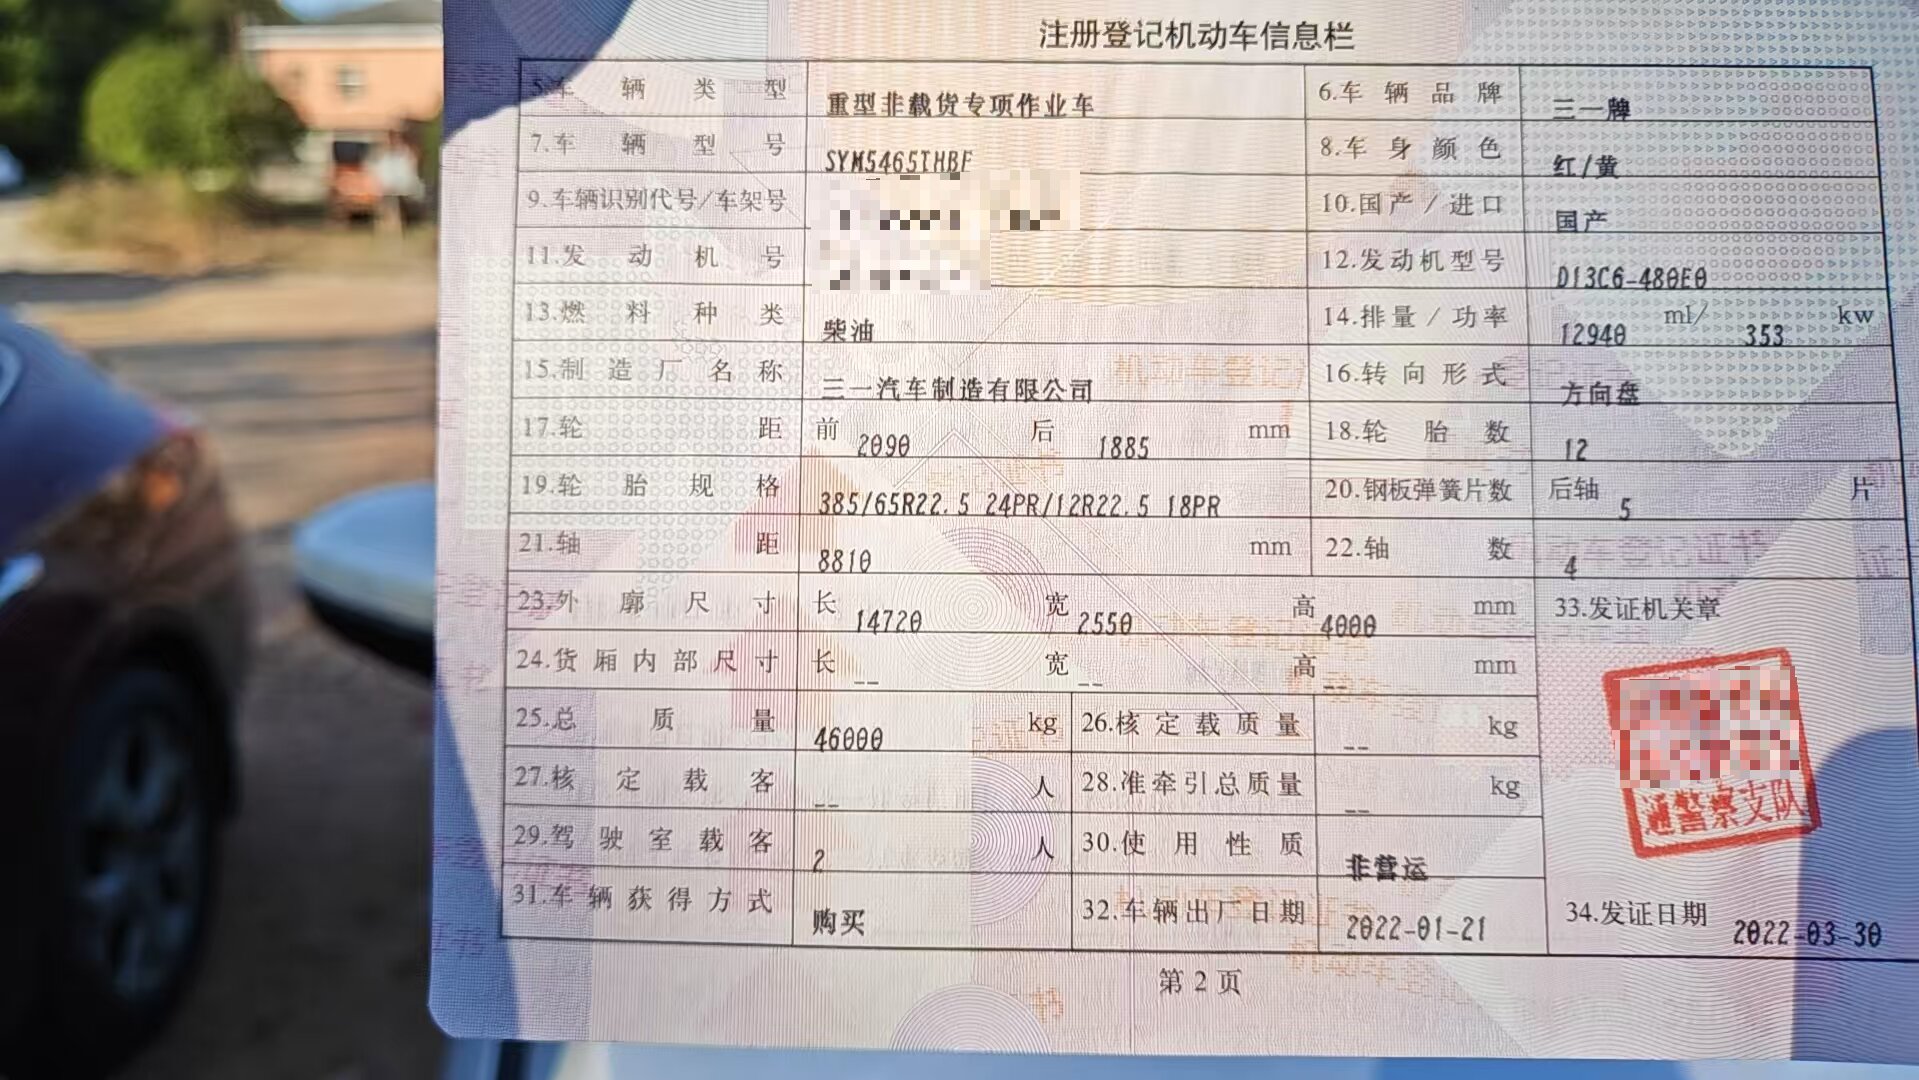 注册登记机动车信息栏
5.车辆类型 重型非载货专项作业车 6.车辆品牌 三一牌
7.车辆型号 SYM5465THBF 8.车身颜色 红/黄
9.车辆识别代号/车架号 10.国产/进口 国产
11.发动机号 12.发动机型号 D13C6-480E0
13.燃料种类 柴油 14.排量/功率 12940 ml/ 353 kw
15.制造厂名称 三一汽车制造有限公司 16.转向形式 方向盘
17.轮距 前 2090 后 1885 mm 18.轮胎数 12
19.轮胎规格 385/65R22.5 24PR/12R22.5 18PR 20.钢板弹簧片数 后轴 5 片
21.轴距 8810 mm 22.轴数 4
23.外廓尺寸 长 14720 宽 2550 高 4000 mm 33.发证机关章
24.货厢内部尺寸 长 -- 宽 -- 高 -- mm
25.总质量 46000 kg 26.核定载质量 -- kg
27.核定载客 -- 人 28.准牵引总质量 -- kg
通警察支队
29.驾驶室载客 2 人 30.使用性质 非营运
31.车辆获得方式 购买 32.车辆出厂日期 2022-01-21 34.发证日期 2022-03-30
第 2 页